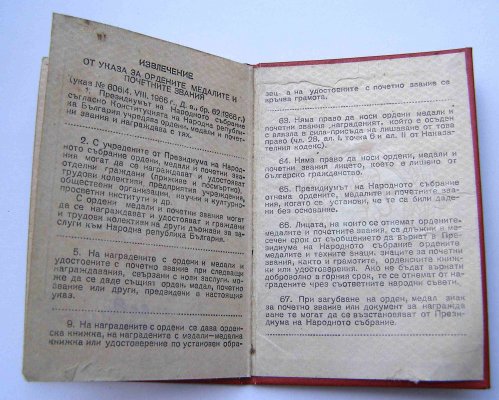 ИЗВЛЕЧЕНИЕ
ОТ УКАЗА ЗА ОРДЕНИТЕ, МЕДАЛИТЕ И
ПОЧЕТНИТЕ ЗВАНИЯ
(указ № 606/4. VIII. 1966 г., Д. в., бр. 62/1966 г.)
1. Президиумът на Народното събрание
съгласно Конституцията на Народна република
България учредява ордени, медали и почетни
звания и награждава с тях.
2. С учредените от Президиума на Народ-
ното събрание ордени, медали и почетни зва-
ния могат да се награждават и удостояват
отделни граждани (приживе и посмъртно),
трудови колективи, предприятия, учреждения,
обществени организации, научни и културно-
просветни институти и др.
С ордени и медали и почетни звания могат
да се награждават и удостояват и граждани
и трудови колективи на други държави за за-
слуги към Народна република България.
5. На наградените с ордени и медали и
удостоените с почетно звание при следващи
награждавания, свързани с нови заслуги, мо-
же да се даде същият орден, медал, почетно
звание или други, предвидени в настоящия
указ.
9. На наградените с ордени се дава орденс-
ка книжка, на наградените с медали—медална
книжка или удостоверение по установен обра-
зец, а на удостоените с почетно звание се
връчва грамота.
63. Няма право да носи ордени, медали
и почетни звания награденият, който е осъден
с влязла в сила присъда на лишаване от това
право (чл. 28, ал. I, точка 6 и ал. II от Наказа-
телния кодекс).
64. Няма право да носи ордени, медали и
почетни звания лицето, което е лишено от
българско гражданство.
65. Президиумът на Народното събрание
отнема ордените, медалите и почетните зва-
ния, когато се установи, че те са били даде-
ни без основание.
66. Лицата, на които се отнемат ордените,
медалите и почетните звания, са длъжни в ме-
сечен срок от съобщението да върнат в Прези-
диума на Народното събрание ордените и
медалите и техните знаци, знаците за почетни
звания, както и грамотите, орденските книж-
ки или удостоверения. Ако не бъдат върнати
доброволно в горния срок, те се отнемат от на-
градените чрез съответните народни съвети.
67. При загубване на орден, медал, знак
за почетно звание или документ за награжда-
ване те могат да се възстановяват от Прези-
диума на Народното събрание.